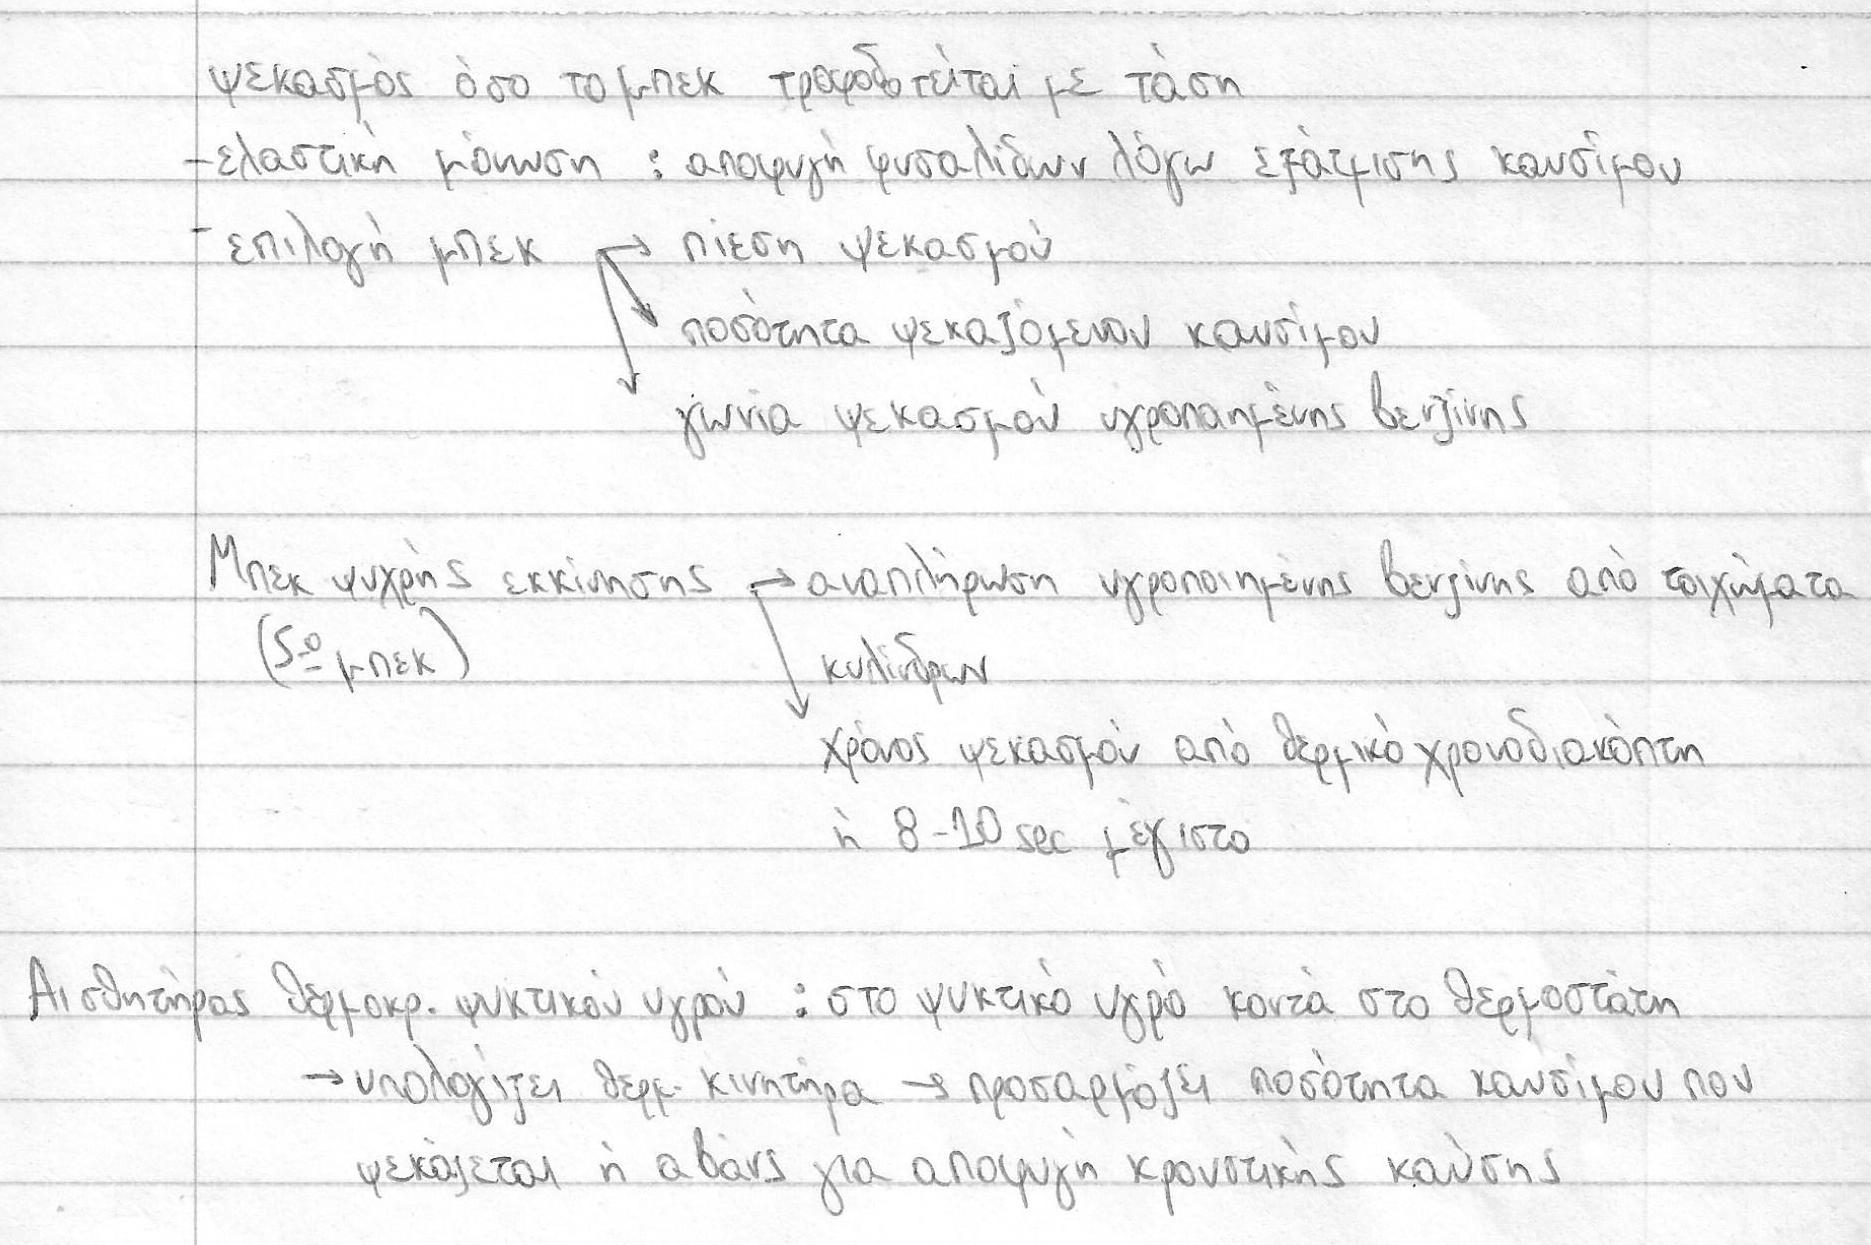 ψεκασμός όσο το μπεκ τροφοδοτείται με τάση
- ελαστική μόνωση : αποφυγή φυσαλίδων λόγω εξάτμισης καυσίμου
- επιλογή μπεκ → πίεση ψεκασμού
ποσότητα ψεκαζόμενου καυσίμου
γωνία ψεκασμού υγροποιημένης βενζίνης
Μπεκ ψυχρής εκκίνησης → αναπλήρωση υγροποιημένης βενζίνης από τοιχώματα
(5ο μπεκ) κυλίνδρων
χρόνος ψεκασμού από θερμικό χρονοδιακόπτη
ή 8-10 sec μέγιστο
Αισθητήρας θερμοκρ. ψυκτικού υγρού : στο ψυκτικό υγρό κοντά στο θερμοστάτη
→ υπολογίζει θερμ. κινητήρα → προσαρμόζει ποσότητα καυσίμου που
ψεκάζεται ή αβάνς για αποφυγή κρουστικής καύσης